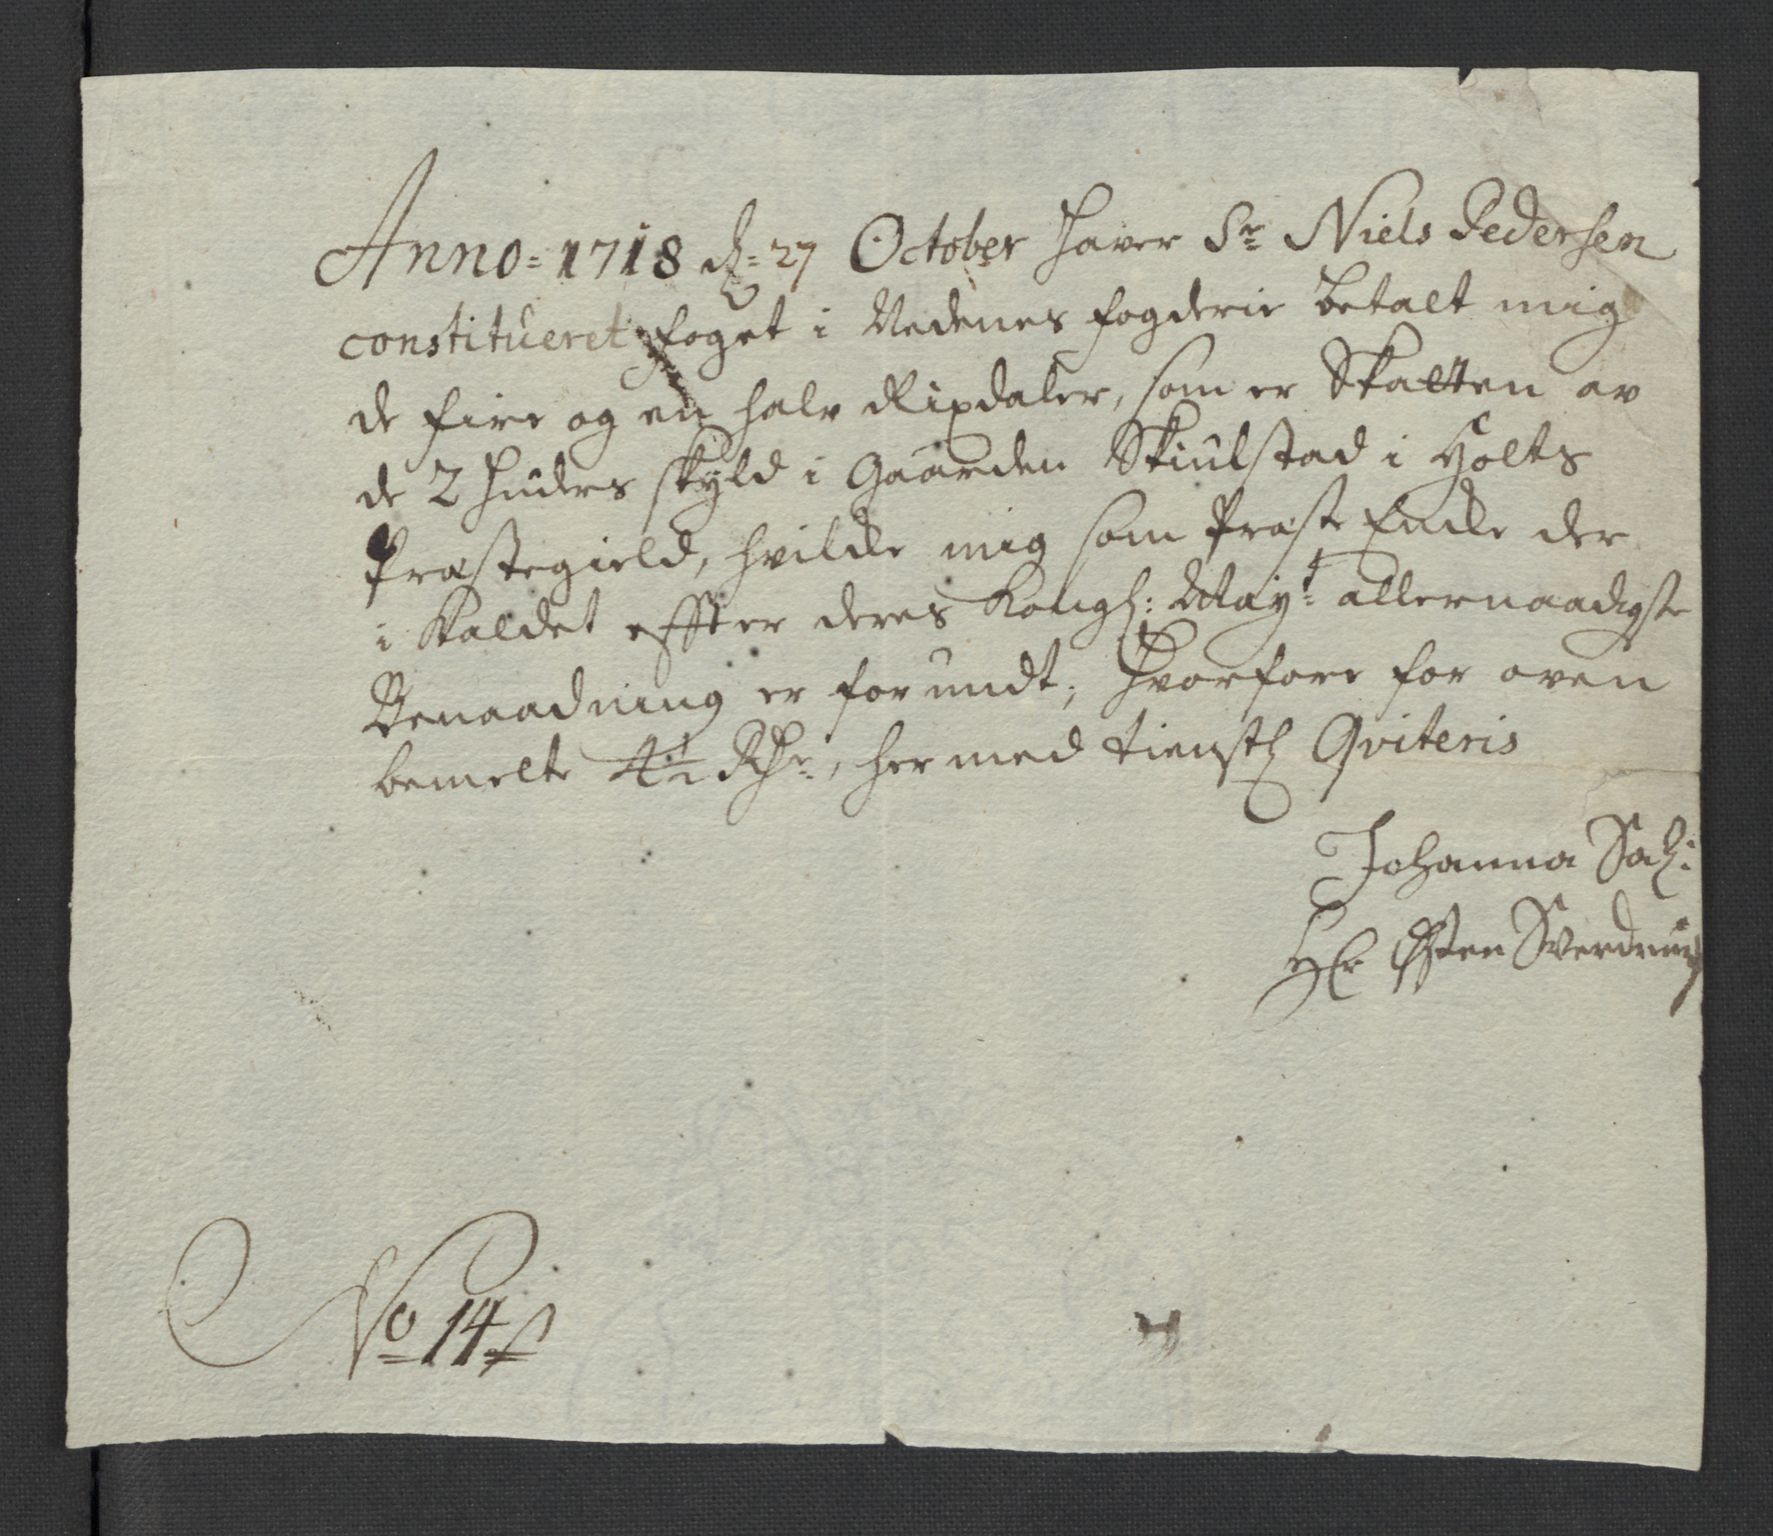 Anno 1718 d: 27 October Haver Sr Niels Pedersen
constitueret foget i Nedenes fogderie betalt mig
de fire og en halv Rixdaler, som er Skatten av
de 2 Huders skyld i Gaarden Skiulstad i Holts
Præstegield, hvilke mig som Præste Encke der
i Kaldet effter deres Kongl: May:t allernaadigste
Benaadning er forundt, Hvorfore for oven
bemelte 4½ Rdr, her med tienstl Qviteris
Johanna Sal:
Hr Østen Sverdrup
No 14